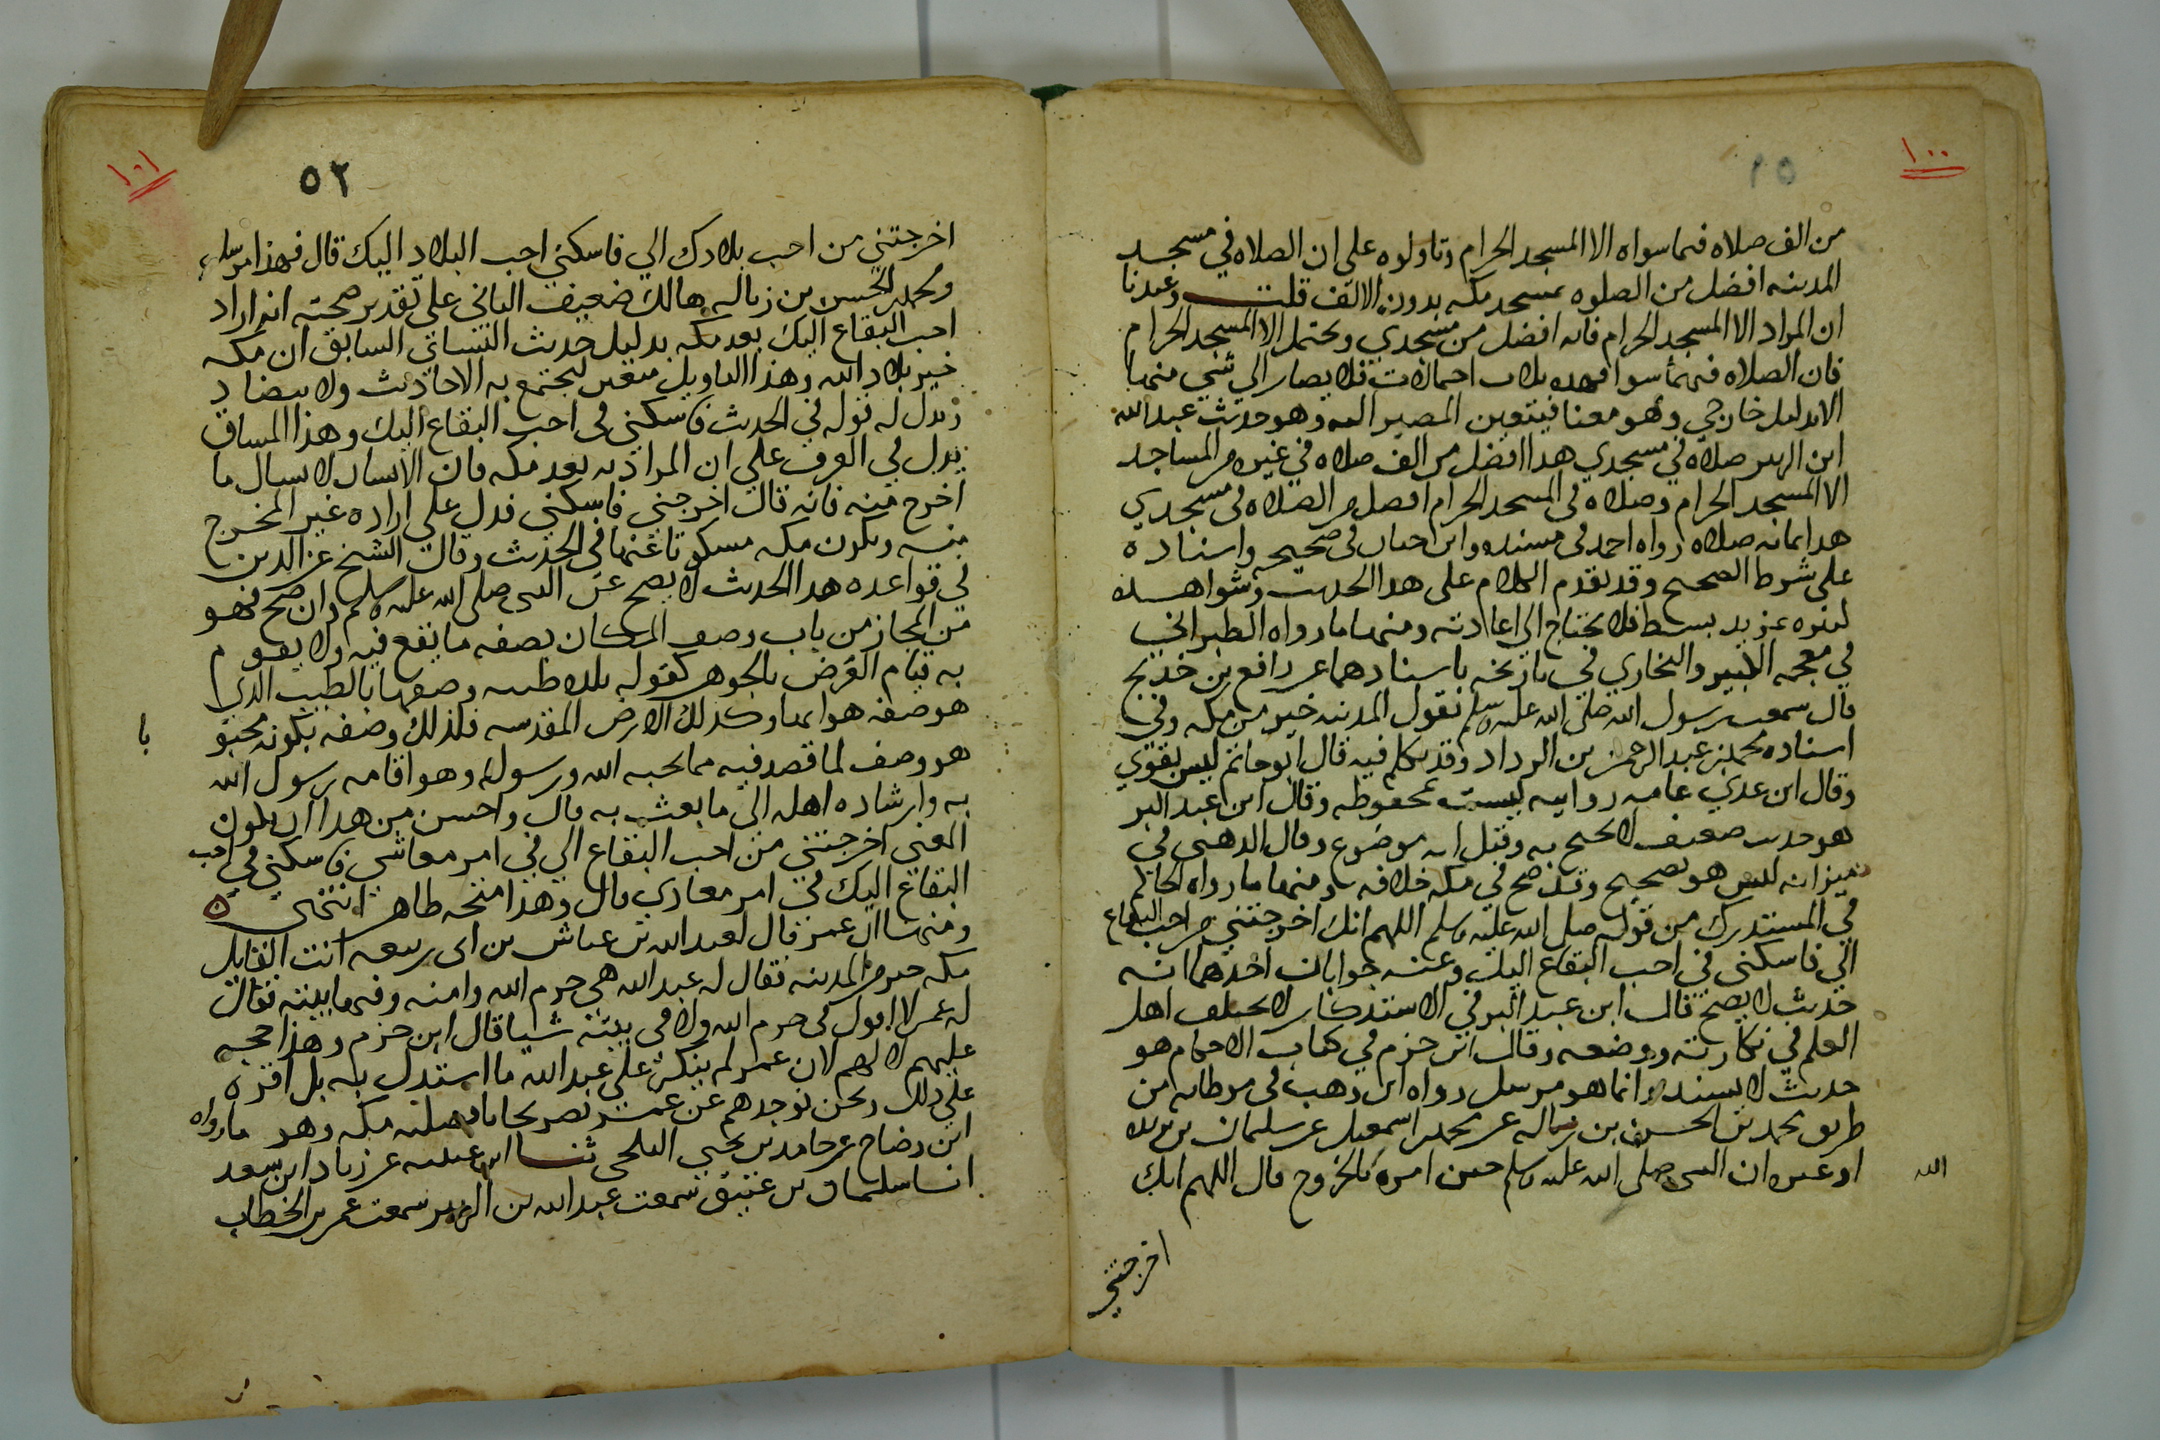 ١٠٠
من الف صلاه فيما سواه الا المسجد الحرام وتاولوه على ان الصلاه في مسجد
المدينه افضل من الصلوه بمسجد مكه بدون الالف قلت وعندنا
ان المراد الا المسجد الحرام فانه افضل من مسجدي ويحتمل الا المسجد الحرام
فان الصلاه فيهما سوا فهده ثلاث احمالات فلا يصار الي شي منها
الا بدليل خارجي وهو معنا فيتعين المصير اليه وهو حديث عبد الله
ابن الزبير صلاه في مسجدي هدا افضل من الف صلاه في غيره من المساجد
الا المسجد الحرام وصلاه في المسجد الحرام افضل من الصلاه في مسجدي
هدا بمايه صلاه رواه احمد في مسنده وابن حبان في صحيحه واسناده
على شرط الصحيح وقد تقدم الكلام على هدا الحديث وشواهده
بمزيد بسط فلا يحتاج الي اعادته ومنها ما رواه الطبراني
في معجمه الكبير والبخاري في تاريخه باسنادهما عن رافع بن خديج
قال سمعت رسول الله صلى الله عليه وسلم يقول المدينه خير من مكه وفي
اسناده محمد بن عبد الرحمن بن الرداد وقد تكلم فيه قال ابو حاتم ليس بقوي
وقال ابن عدي عامه رواياته ليست محفوظه وقال ابن عبد البر
هو حديث ضعيف لا يحتج به وقيل انه موضوع وقال الذهبي في
ميزانه ليس هو بصحيح وقد صح في مكه خلافه ومنها ما رواه الحاكم
في المستدرك من قوله صلى الله عليه وسلم اللهم انك اخرجتني من احب البقاع
الي فاسكني في احب البقاع اليك وعنه جوابان احدهما انه
حديث لا يصح قال ابن عبد البر في الاستذكار لا يختلف اهل
العلم في نكارته ووضعه وقال ابن حزم في كتاب الاحكام هو
حديث لا يسند وانما هو مرسل رواه ابن وهب في موطائه من
طريق محمد بن الحسن بن زباله عن محمد بن اسمعيل عن سليمان بن بريده
او غيره ان النبي صلى الله عليه وسلم حين امره بالخروج قال اللهم انك
الله
اخرجتني
١٠١
٥٢
اخرجتني من احب بلادك الي فاسكني احب البلاد اليك قال فهذا مرسل
ومحمد بن الحسن بن زباله هالك ضعيف الثاني على تقدير صحته انه اراد
احب البقاع اليك بعد مكه بدليل حديث النسائي السابق ان مكه
خير بلاد الله وهذا التاويل متعين لتجتمع به الاحاديث ولا يتضاد
ويدل له قوله في الحديث فاسكني في احب البقاع اليك وهذا المساق
يدل في العرف على ان المراد به بعد مكه فان الانسان لا يسال ما
اخرج منه فانه قال اخرجتني فاسكني فدل على اراده غير المخرج
منه وتكون مكه مسكوتا عنها في الحديث وقال الشيخ عز الدين
في قواعده هدا الحديث لا يصح عن النبي صلى الله عليه وسلم وان صح فهو
من المجاز من باب وصف المكان بصفه ما يقع فيه ولا يقوم
به قيام العرض بالجوهر كقوله بلده طيبه وصفها بالطيب الدي
هو صفه هوائها وكذلك الارض المقدسه فلذلك وصفه بكونه محبوبا
هو وصف لما قصد فيه مما يحبه الله ورسوله وهو اقامه رسول الله
به وارشاده اهله الى ما بعث به قال واحسن من هدا ان يكون
المعني اخرجتني من احب البقاع الي في امر معاشي فاسكني في احب
البقاع اليك في امر معادي قال وهذا متجه ظاهر انتهى ٥
ومنها ان عمر قال لعبد الله بن عياش بن ابي ربيعه انت القايل
مكه خير من المدينه فقال له عبد الله هي حرم الله وامنه وفيها بيته فقال
له عمر لا اقول في حرم الله ولا في بيته شيا قال ابن حزم وهذا حجه
عليهم لا لهم لان عمر لم ينكر على عبد الله ما استدل به بل اقره
على ذلك ونحن نوجدهم عن عمر تصريحا بافضليه مكه وهو ما رواه
ابن وضاح عن حامد بن يحيي البلخي ثنا ابن عيينه عن زياد ابن سعد
انبا سليمان بن عتيق سمعت عبد الله بن الزبير سمعت عمر بن الخطاب